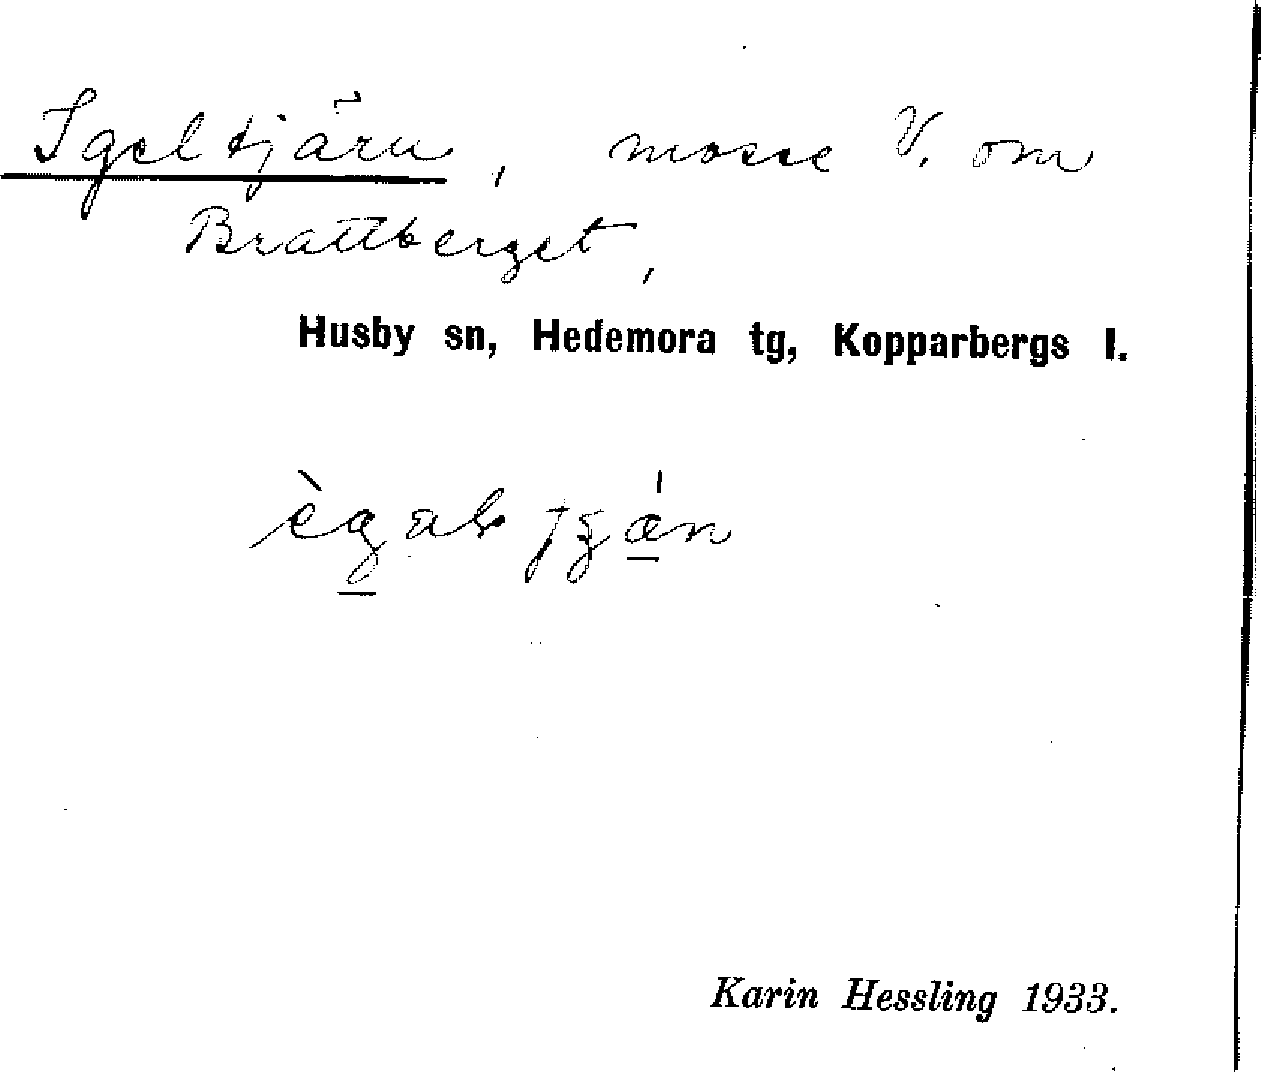 Igeltjärn, mosse V. om
Brattberget,
Husby sn, Hedemora tg, Kopparbergs l.
Karin Hessling 1933.